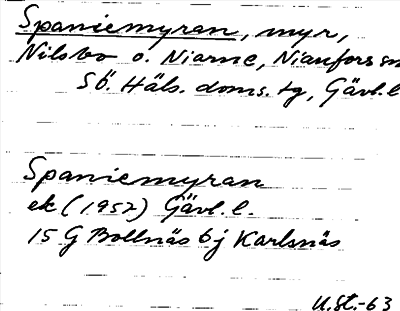 Spaniemyran, myr,
Nilsbo o. Niarne, Nianfors sn
Sö. Häls. doms. tg, Gävl. l
Spaniemyran
ek (1952) Gävl. l.
15 G Bollnäs 6j Karlsnäs
U.St.-63